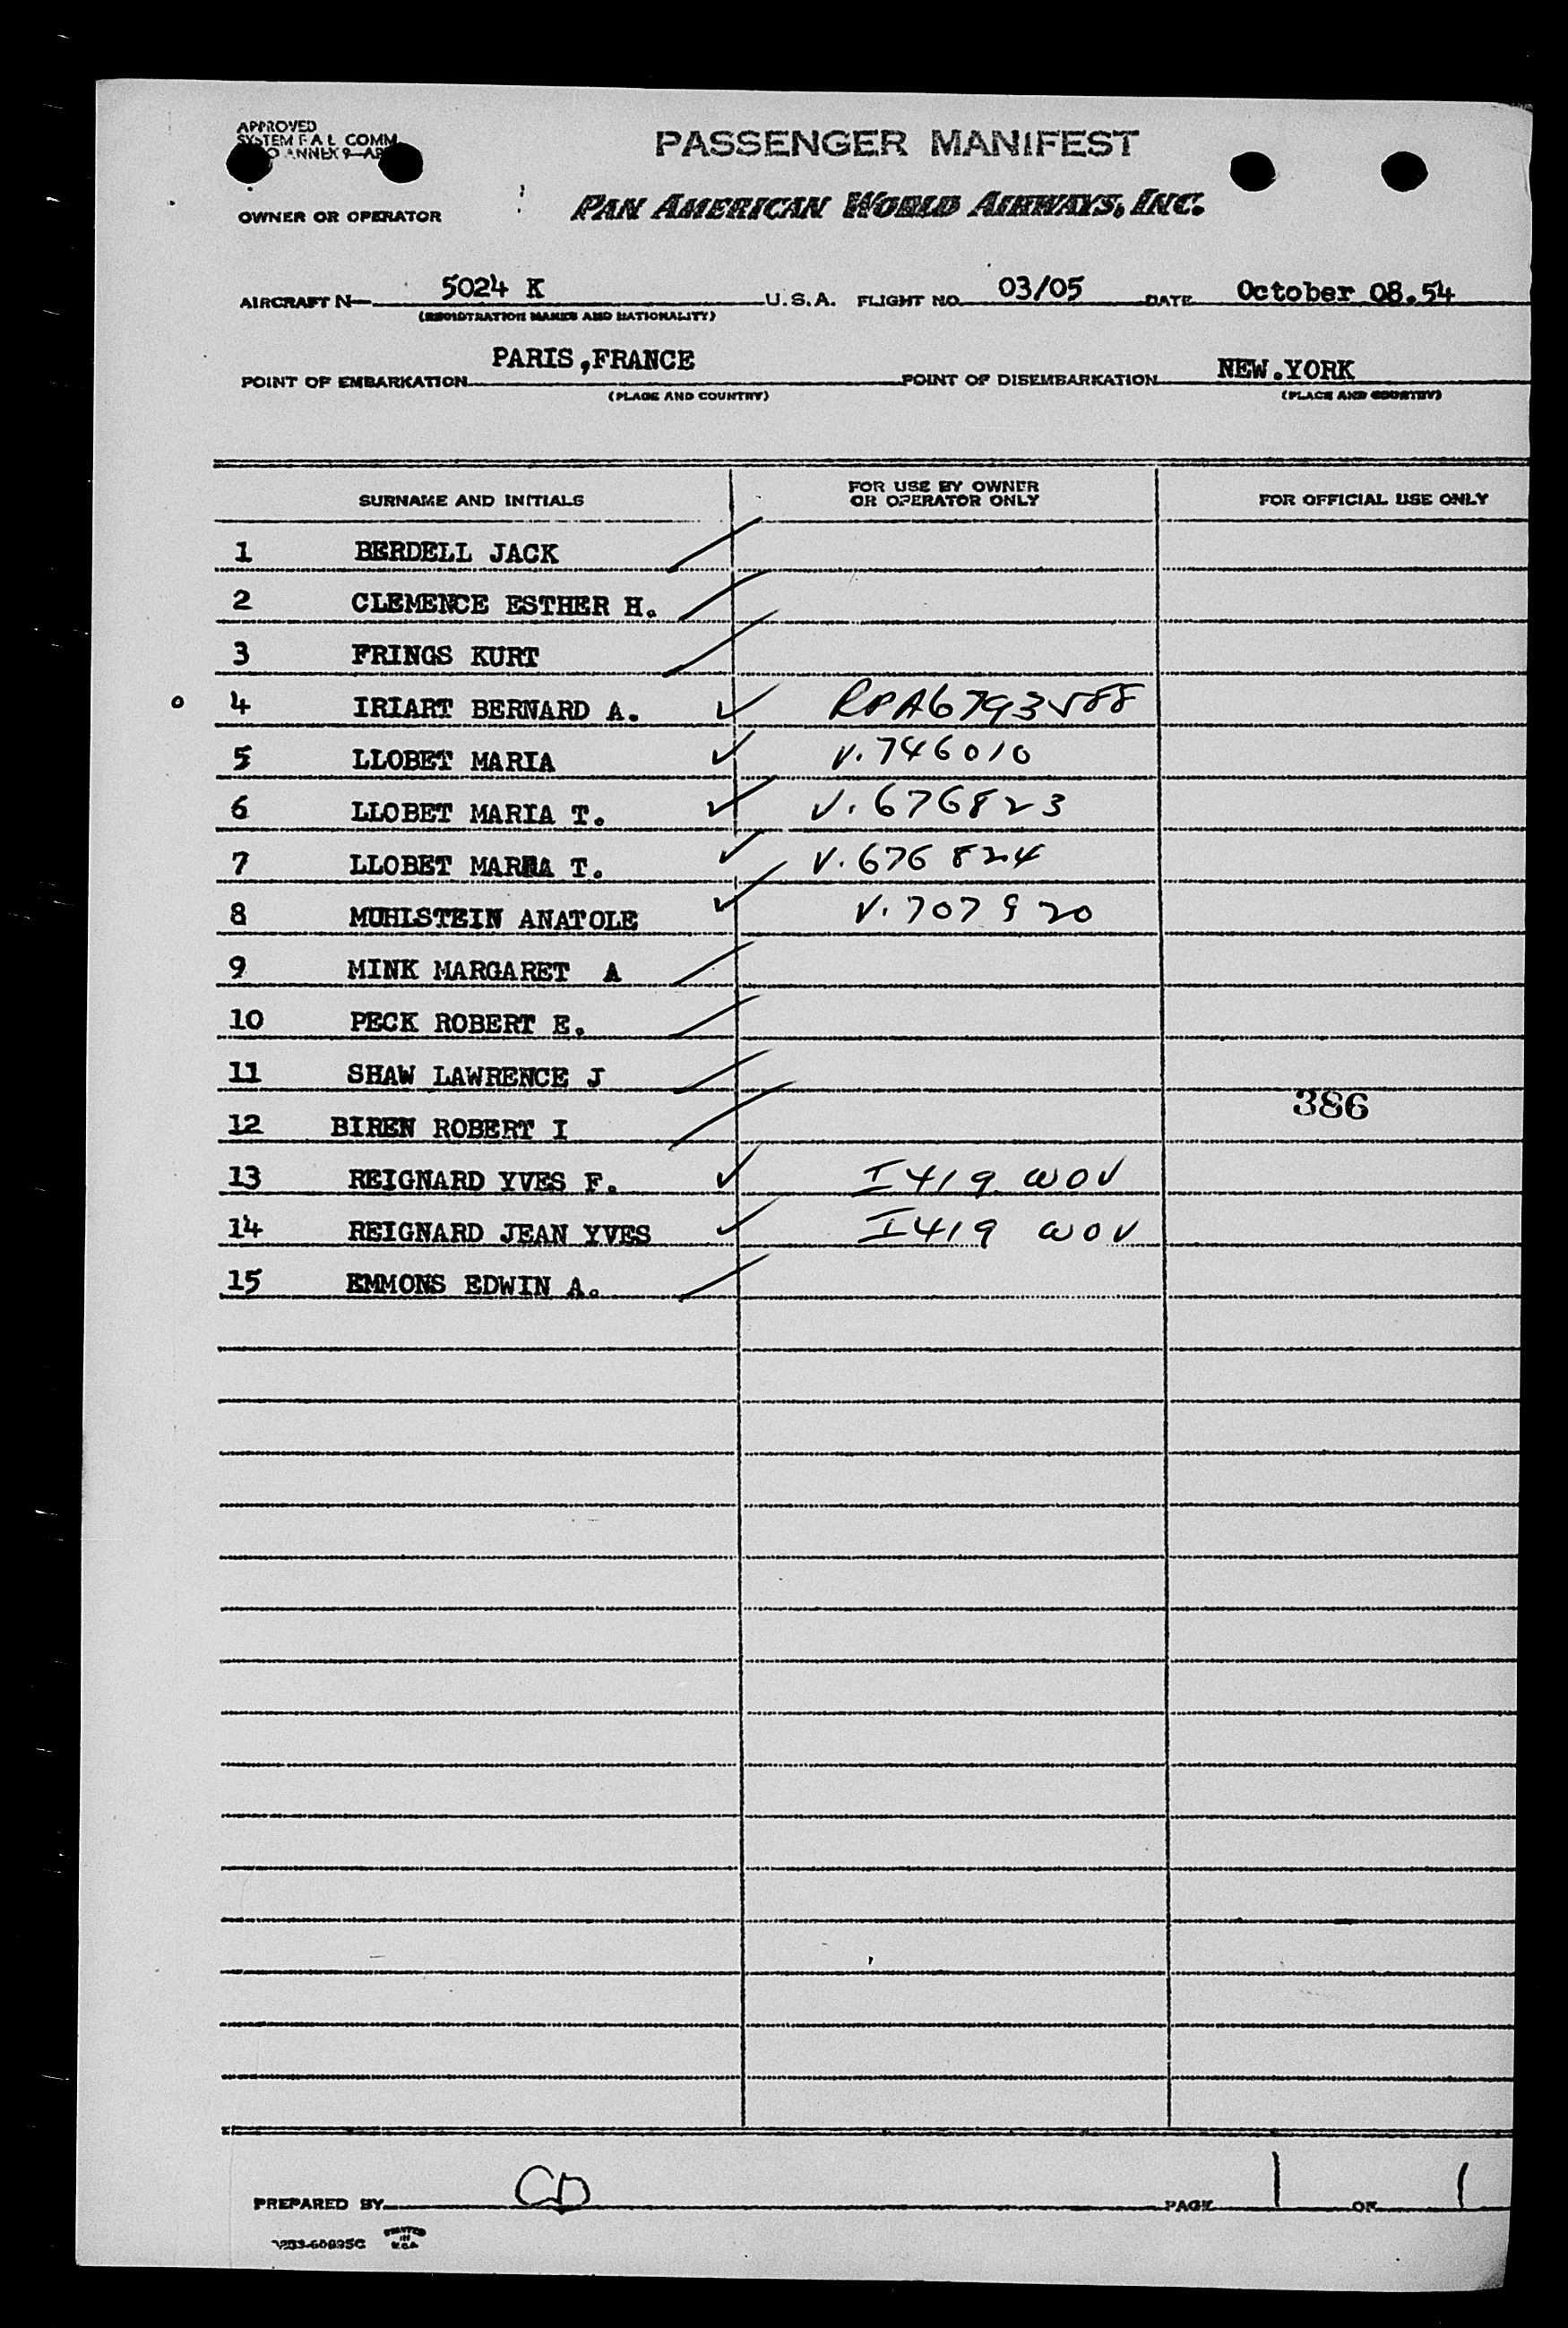 APPROVED
SYSTEM F A L COMM
ANNEX 9
PASSENGER MANIFEST
OWNER OR OPERATOR
PAN AMERICAN WORLD AIRWAYS, INC.
AIRCRAFT N 5024 K U.S.A. FLIGHT NO. 03/05 DATE October 08.54
(REGISTRATION MARKS AND NATIONALITY)
POINT OF EMBARKATION PARIS,FRANCE POINT OF DISEMBARKATION NEW.YORK
(PLACE AND COUNTRY) (PLACE AND COUNTRY)
SURNAME AND INITIALS FOR USE BY OWNER OR OPERATOR ONLY FOR OFFICIAL USE ONLY
1 BERDELL JACK
2 CLEMENCE ESTHER H.
3 FRINGS KURT
4 IRIART BERNARD A. RPA6793588
5 LLOBET MARIA V.746010
6 LLOBET MARIA T. V.676823
7 LLOBET T. V.676824
8 MUHLSTEIN ANATOLE V.707920
9 MINK MARGARET A
10 PECK ROBERT E.
11 SHAW LAWRENCE J
386
12 BIREN ROBERT I
13 REIGNARD YVES F. I419 WOV
14 REIGNARD JEAN YVES I419 WOV
15 EMMONS EDWIN A.
PREPARED BY CD PAGE 1 OF 1
PRINTED
IN
U.S.A.